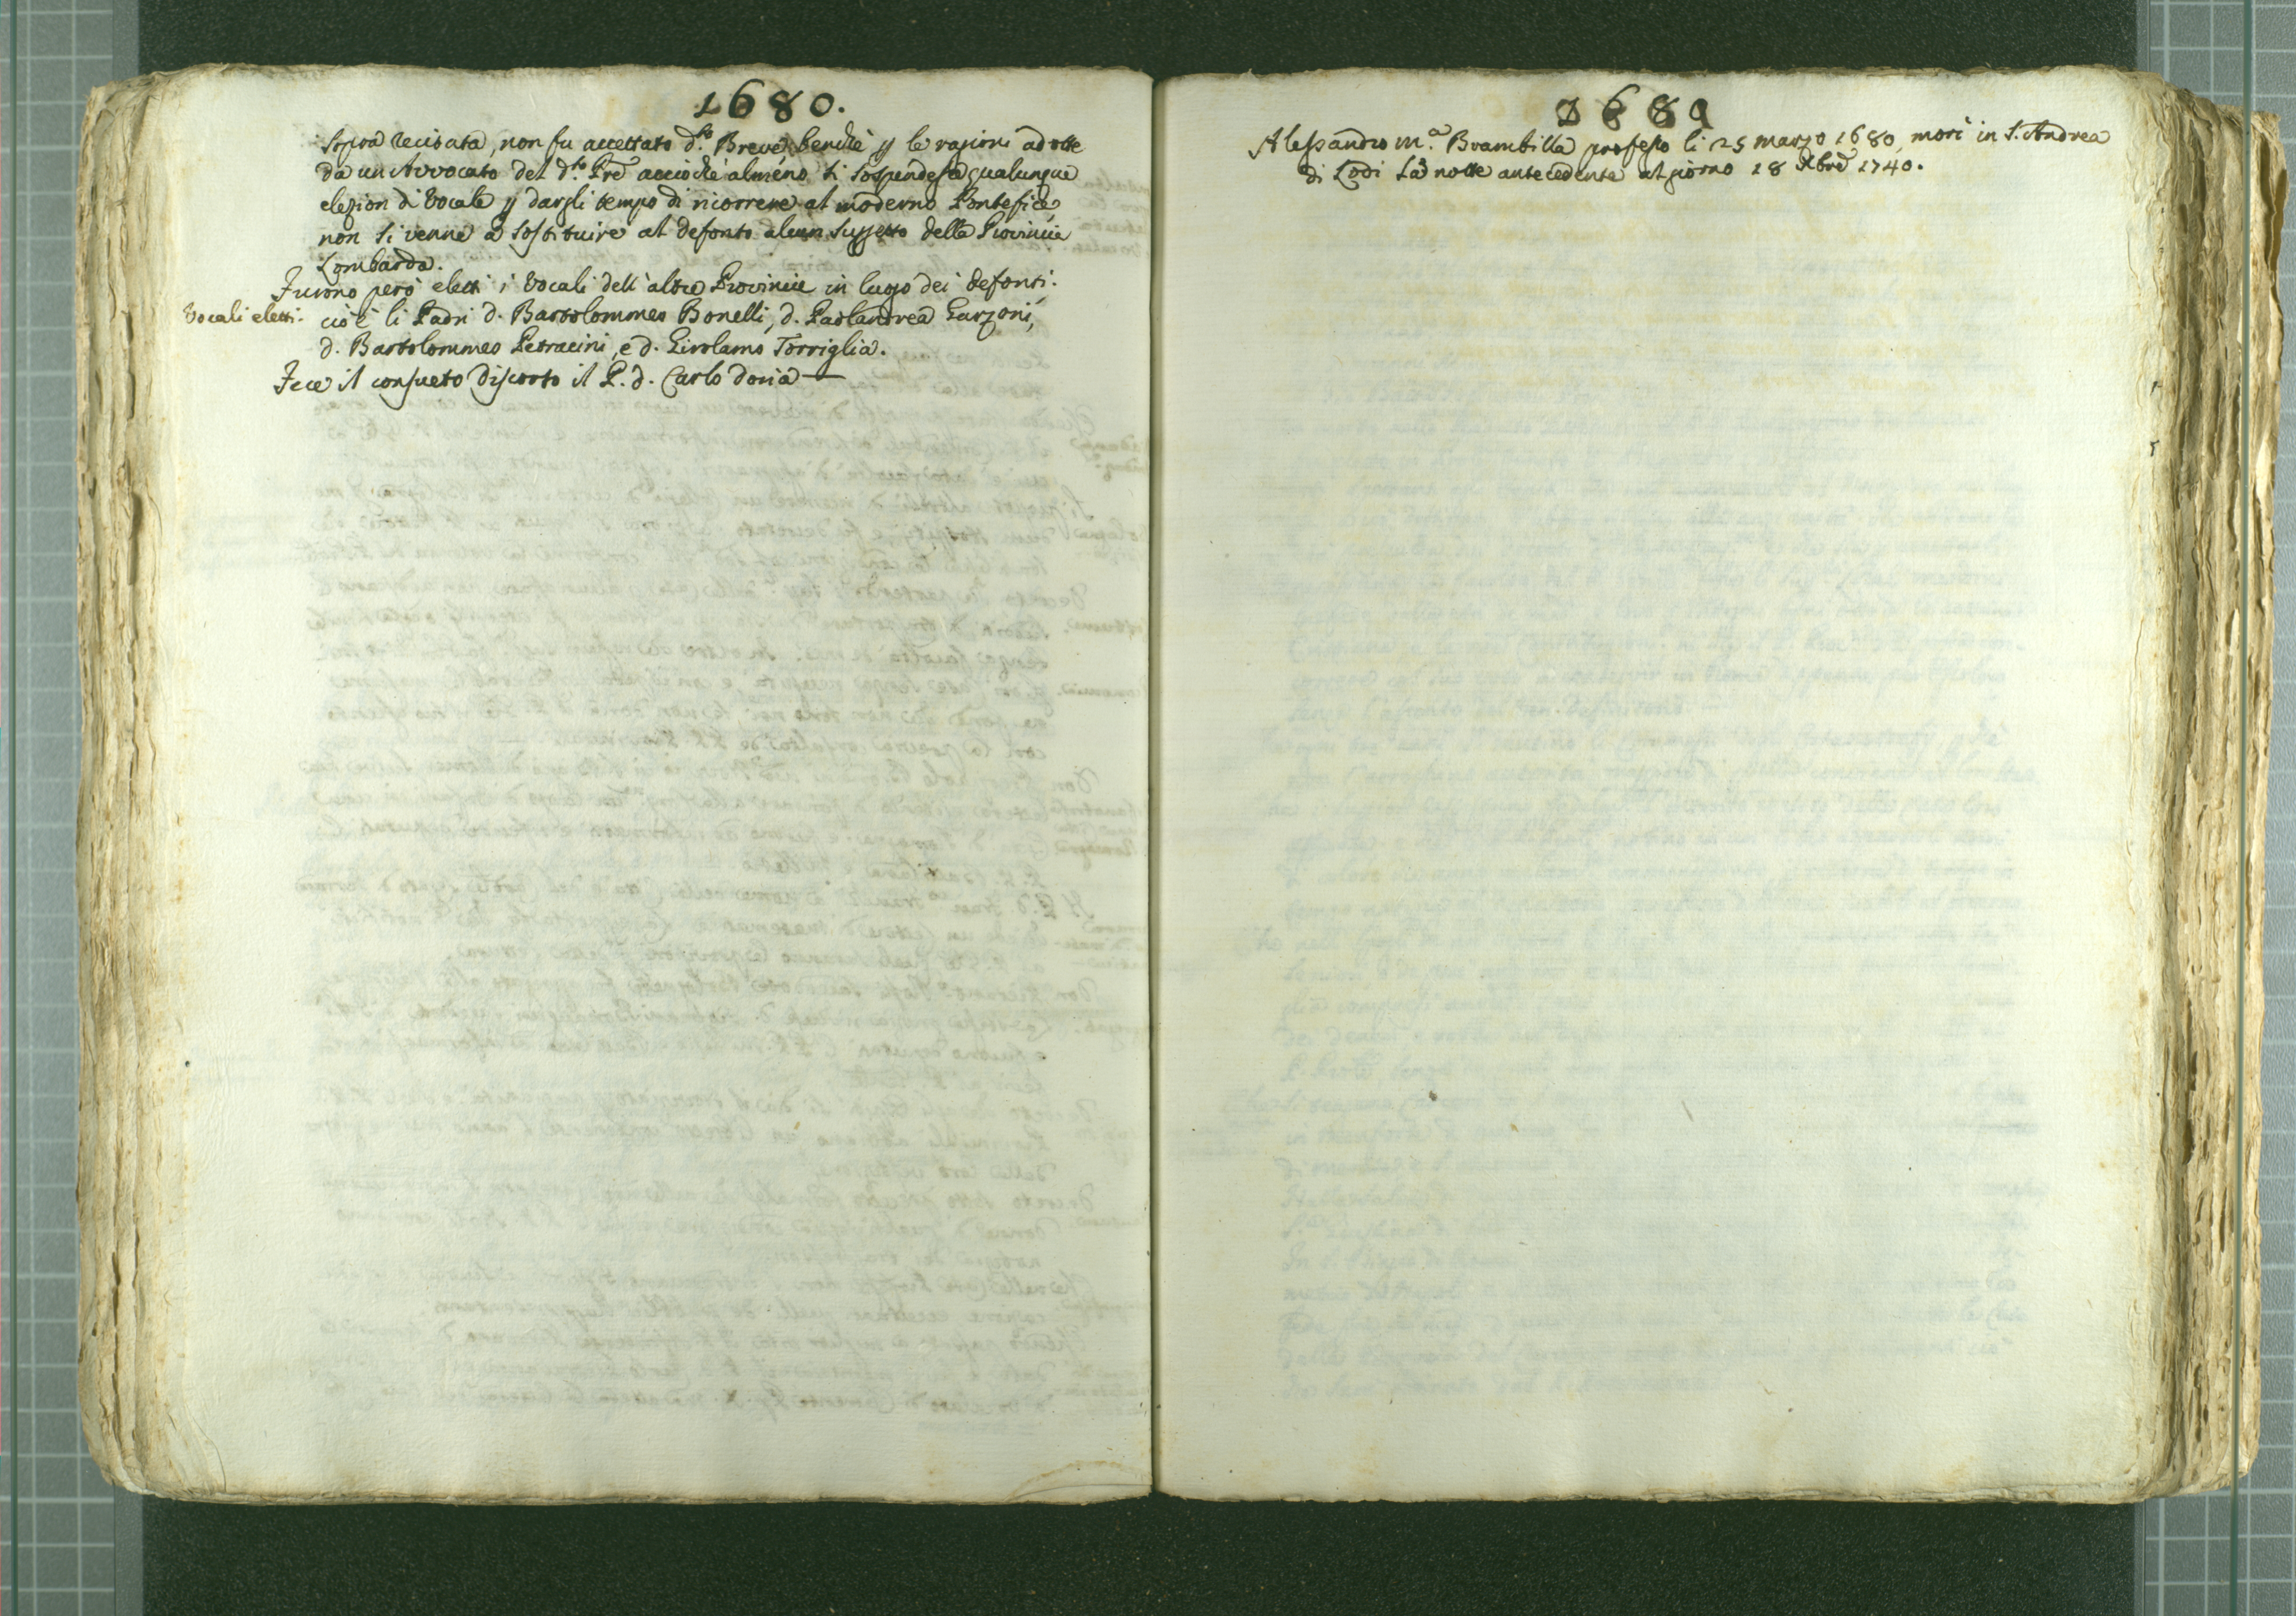 1680.
sopra recitata, non fu accettato d.to Breve, benchè p le ragioni adotte
da un Avvocato del d.to Pre acciochè almeno si sospendesse qualunque
elezion di Vocale p dargli tempo di ricorrere al moderno Pontefice,
non si venne à sostituire al defonto alcun suggetto della Provincia
Lombarda.
Furono però eletti i Vocali dell'altre Provincie in luogo dei defonti.
Vocali eletti. cioè li Padri d. Bartolommeo Bonelli, d. Paolandrea Garzoni,
d. Bartolommeo Petracini, e d. Girolamo Torriglia.
Fece il consueto discorso il P. d. Carlo Doria —
1680
Alessandro M.a Brambilla professo li 25 marzo 1680, morì in S. Andrea
di Lodi la notte antecedente al giorno 18 Xbre 1740.